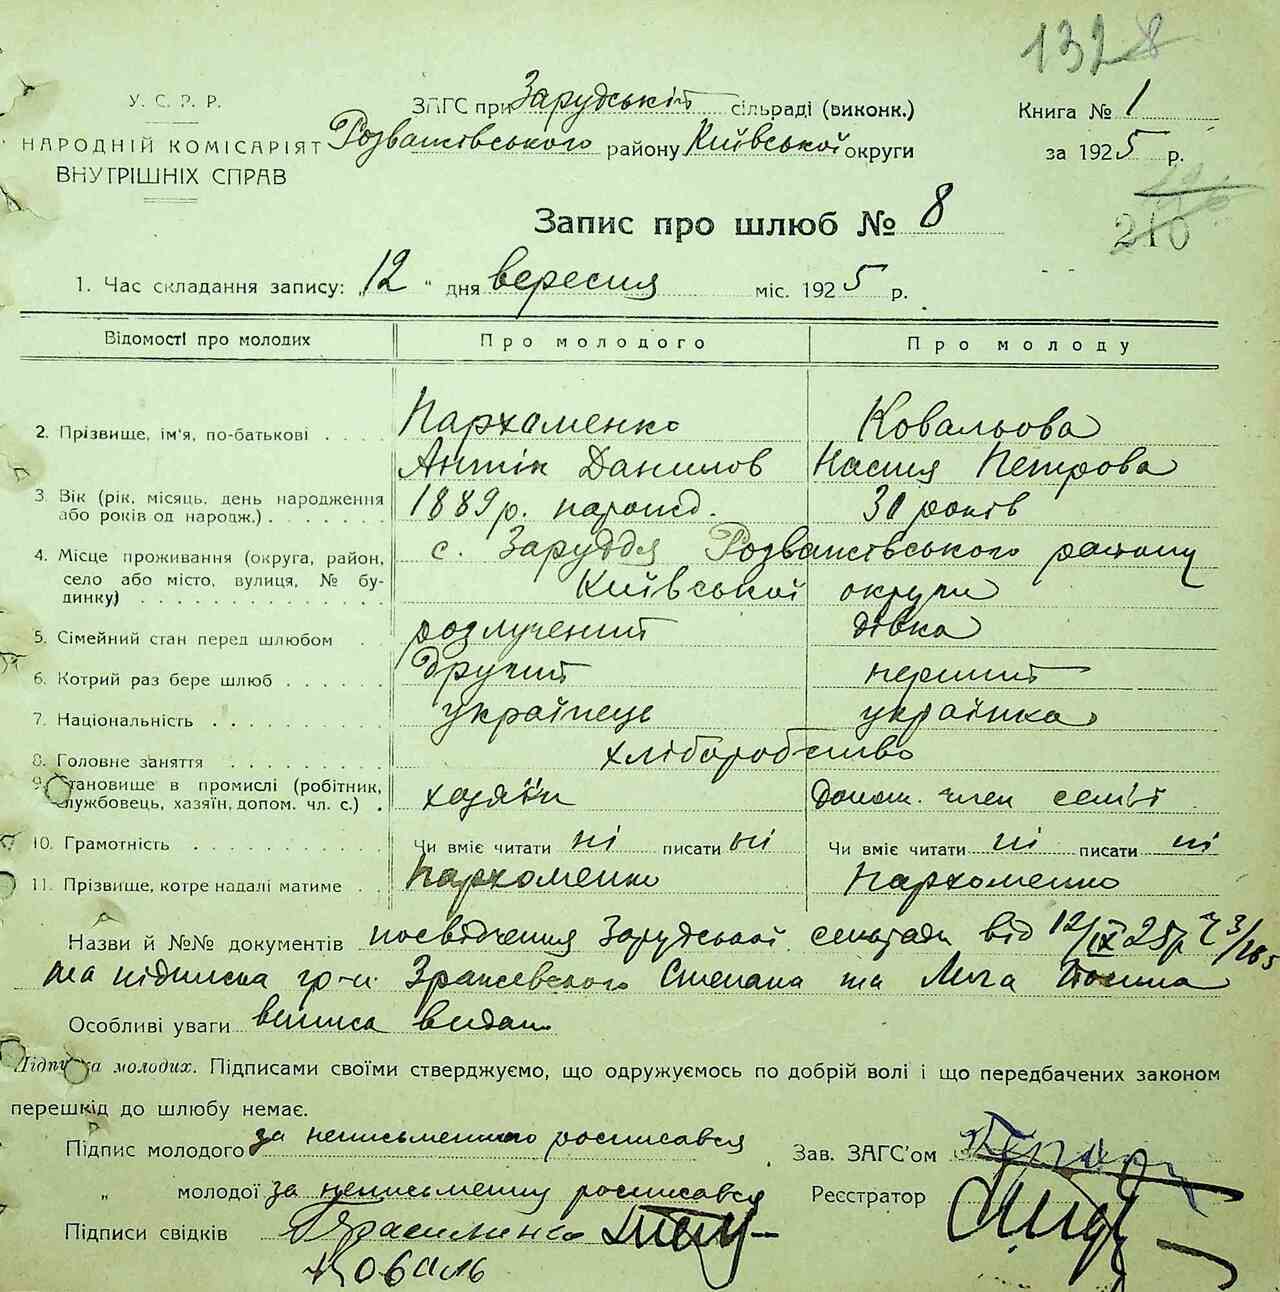 132 8
У. С. Р. Р.
НАРОДНІЙ КОМІСАРІЯТ
ВНУТРІШНІХ СПРАВ
ЗАГС при Зарудській сільраді (виконк.)
Розважівського району Київської округи
Книга № 1
за 1925 р.
210
Запис про шлюб № 8
1. Час складання запису: „12“ дня вересня міс. 1925 р.
Відомості про молодих Про молодого Про молоду
2. Прізвище, ім'я, по-батькові . . . . Пархаменко Ковальова
Антін Данилов Настя Петрова
3. Вік (рік, місяць, день народження або років од народж.) . . . . . . . 1889 р. народ. 30 років
4. Місце проживання (округа, район, село або місто, вулиця, № будинку) . . . . . . . . . . . . . с. Заруддя Розважівського району
Київської округи
5. Сімейний стан перед шлюбом . розлучений дівка
6. Котрий раз бере шлюб . . . . . . другий перший
7. Національність . . . . . . . . . українець українка
8. Головне заняття . . . . . . . . хліборобство
9. Становище в промислі (робітник, службовець, хазяїн, допом. чл. с.) . хазяїн Допом. член семї
10. Грамотність . . . . . . . . . . Чи вміє читати ні писати ні Чи вміє читати ні писати ні
11. Прізвище, котре надалі матиме . . Пархоменко Пархоменко
Назви й №№ документів посвідчення Зарудської сельради від 12/IX 25р
та підписка гр-н Зражевського Степана та
Особливі уваги виписа видан
Підписка молодих. Підписами своїми стверджуємо, що одружуємось по добрій волі і що передбачених законом
перешкід до шлюбу немає.
Підпис молодого за неписьменного росписався
Зав. ЗАГС'ом
„ молодої за неписьменну росписався
Реєстратор
Підписи свідків Герасименко
Коваль